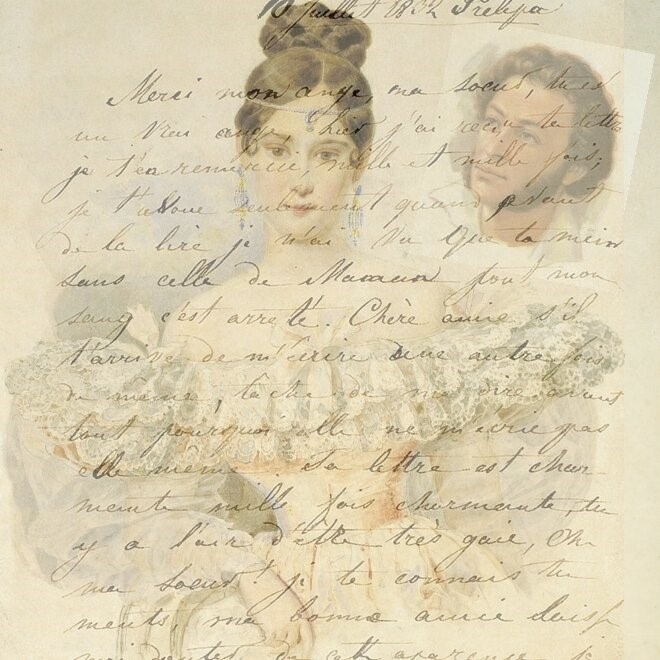 Juillet 1832
Merci mon ange, ma soeur, tu es
un vrai ange. Hier j'ai reçu ta lettre
je t'en remercie, mille et mille fois;
je t'avoue seulement quand avant
de la lire je n'ai vu que ta main
sans celle de Maman tout mon
sang s'est arrêté. Chère amie s'il
t'arrive de m'écrire une autre fois
de même, tâche de me dire avant
tout pourquoi elle ne m'écrit pas
elle même. Ta lettre est char-
mante mille fois charmante, tu
y a l'air d'être très gaie, Oh
ma soeur! je te connais tu
ments, ma bonne amie laisse
moi douter de cette